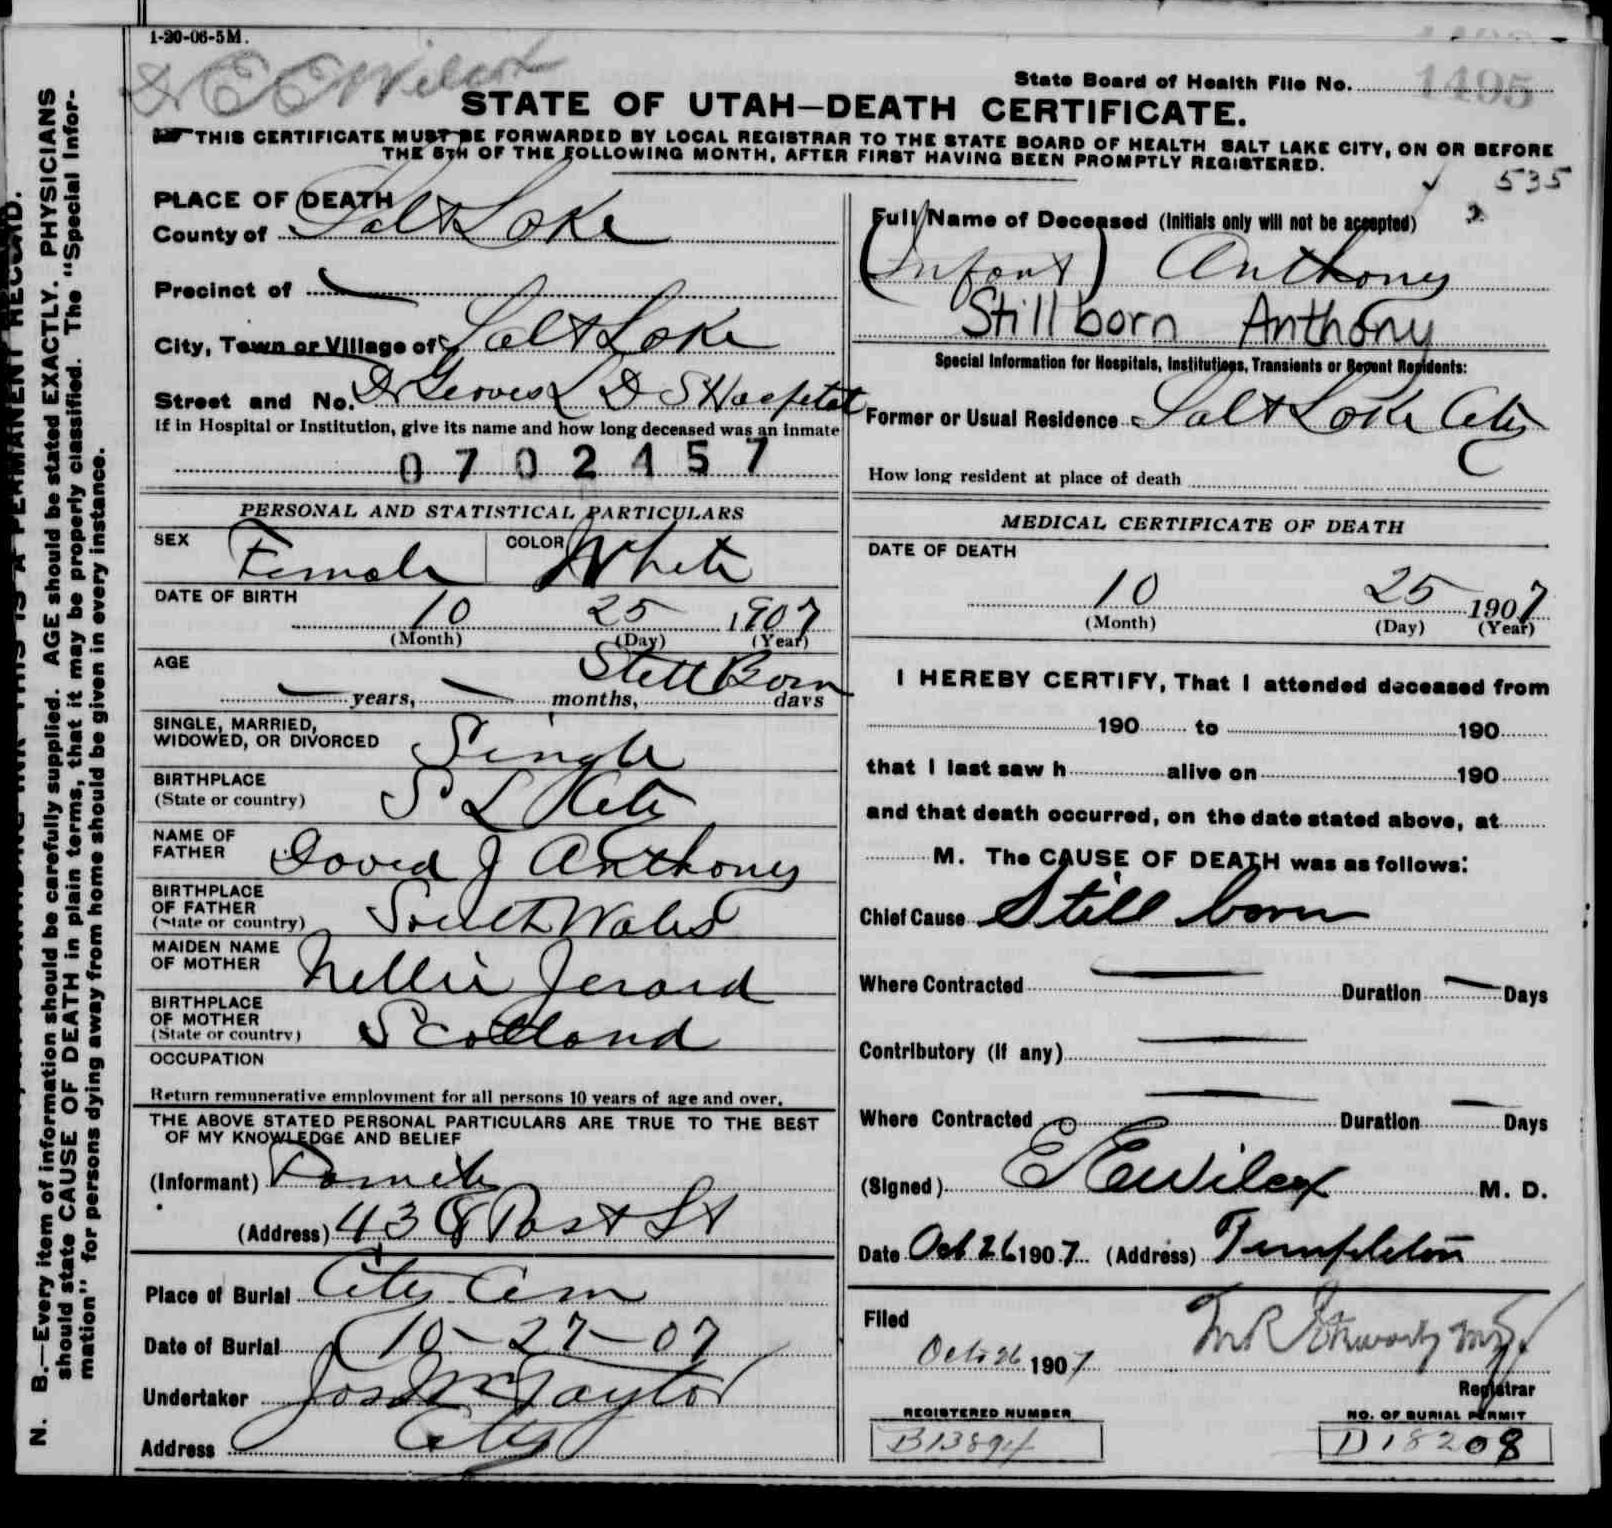 1-20-06-5M.
Dr E E Wilcox
State Board of Health File No. 1495
STATE OF UTAH—DEATH CERTIFICATE.
THIS CERTIFICATE MUST BE FORWARDED BY LOCAL REGISTRAR TO THE STATE BOARD OF HEALTH SALT LAKE CITY, ON OR BEFORE
THE 5TH OF THE FOLLOWING MONTH, AFTER FIRST HAVING BEEN PROMPTLY REGISTERED.
535
PLACE OF DEATH
County of Salt Lake
Precinct of
City, Town or Village of Salt Lake
Street and No. Dr Groves L D S Hospital
If in Hospital or Institution, give its name and how long deceased was an inmate
0702157
PERSONAL AND STATISTICAL PARTICULARS
SEX Female COLOR White
DATE OF BIRTH
10 25 1907
(Month) (Day) (Year)
AGE Still Born
years, months, days
SINGLE, MARRIED,
WIDOWED, OR DIVORCED Single
BIRTHPLACE
(State or country) S L City
NAME OF
FATHER David J Anthony
BIRTHPLACE
OF FATHER
(State or country) South Wales
MAIDEN NAME
OF MOTHER Nellie Jerard
BIRTHPLACE
OF MOTHER
(State or country) Scotland
OCCUPATION
Return remunerative employment for all persons 10 years of age and over.
THE ABOVE STATED PERSONAL PARTICULARS ARE TRUE TO THE BEST
OF MY KNOWLEDGE AND BELIEF
(Informant) Family
(Address) 438 Post St
Place of Burial City Cem
Date of Burial 10-27-07
Undertaker Jos Wm Taylor
Address City
Full Name of Deceased (Initials only will not be accepted) 2
(Infant) Anthony
Stillborn Anthony
Special Information for Hospitals, Institutions, Transients or Recent Residents:
Former or Usual Residence Salt Lake City
How long resident at place of death
MEDICAL CERTIFICATE OF DEATH
DATE OF DEATH
10 25 1907
(Month) (Day) (Year)
I HEREBY CERTIFY, That I attended deceased from
190 to 190
that I last saw h alive on 190
and that death occurred, on the date stated above, at
M. The CAUSE OF DEATH was as follows:
Chief Cause Still born
Where Contracted Duration Days
Contributory (if any)
Where Contracted Duration Days
(Signed) E E Wilcox M. D.
Date Oct 26 1907 (Address) Templeton
Filed
Oct 26 1907
Registrar
REGISTERED NUMBER
B13894
NO. OF BURIAL PERMIT
D18208
N. B.—Every item of information should be carefully supplied. AGE should be stated EXACTLY. PHYSICIANS
should state CAUSE OF DEATH in plain terms, that it may be properly classified. The "Special Infor-
mation" for persons dying away from home should be given in every instance.